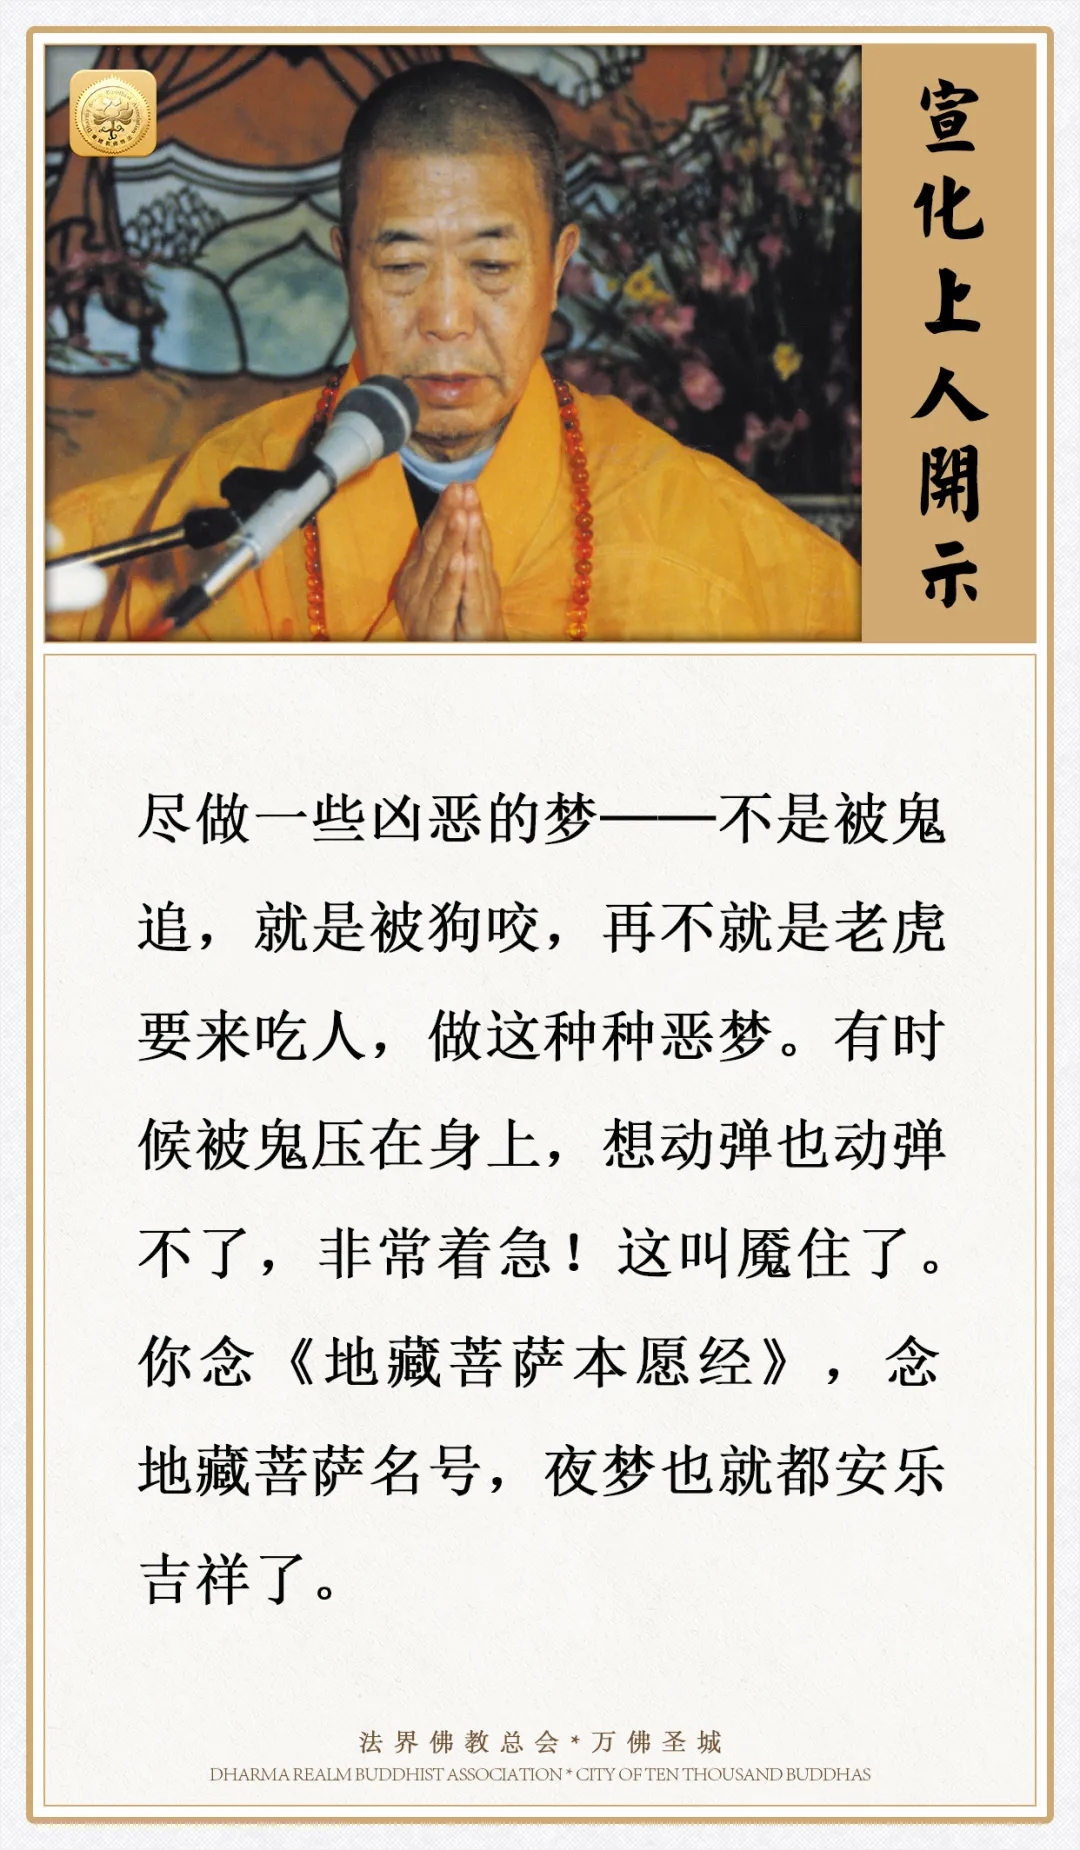 宣化上人開示
尽做一些凶恶的梦——不是被鬼
追，就是被狗咬，再不就是老虎
要来吃人，做这种种恶梦。有时
候被鬼压在身上，想动弹也动弹
不了，非常着急！这叫魇住了。
你念《地藏菩萨本愿经》，念
地藏菩萨名号，夜梦也就都安乐
吉祥了。
法界佛教总会*万佛圣城
DHARMA REALM BUDDHIST ASSOCIATION * CITY OF TEN THOUSAND BUDDHAS